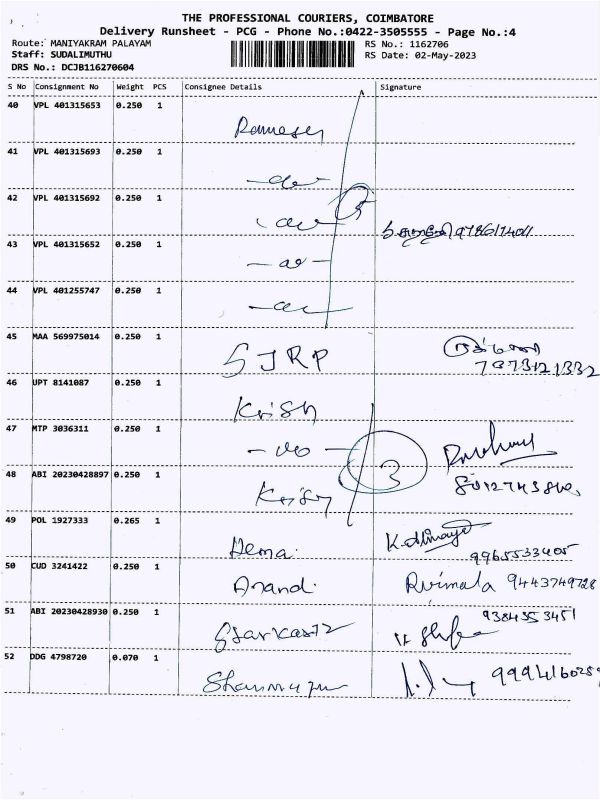 THE PROFESSIONAL COURIERS, COIMBATORE
Delivery Runsheet - PCG - Phone No.:0422-3505555 - Page No.:4
Route: MANIYAKRAM PALAYAM
Staff: SUDALIMUTHU
DRS No.: DCJB116270604
RS No.: 1162706
RS Date: 02-May-2023
S No Consignment No Weight PCS Consignee Details Signature
40 VPL 401315653 0.250 1
Ramesh
41 VPL 401315693 0.250 1
42 VPL 401315692 0.250 1
5
43 VPL 401315652 0.250 1
44 VPL 401255747 0.250 1
45 MAA 569975014 0.250 1
SJRP
7373121332
46 UPT 8141087 0.250 1
Krish
47 MTP 3036311 0.250 1
3
48 ABI 20230428897 0.250 1
Krish
49 POL 1927333 0.265 1
Hema
9965533405
50 CUD 3241422 0.250 1
Anand. R.Vimala 9443749728
51 ABI 20230428930 0.250 1
9384353451
52 DDG 4798720 0.070 1